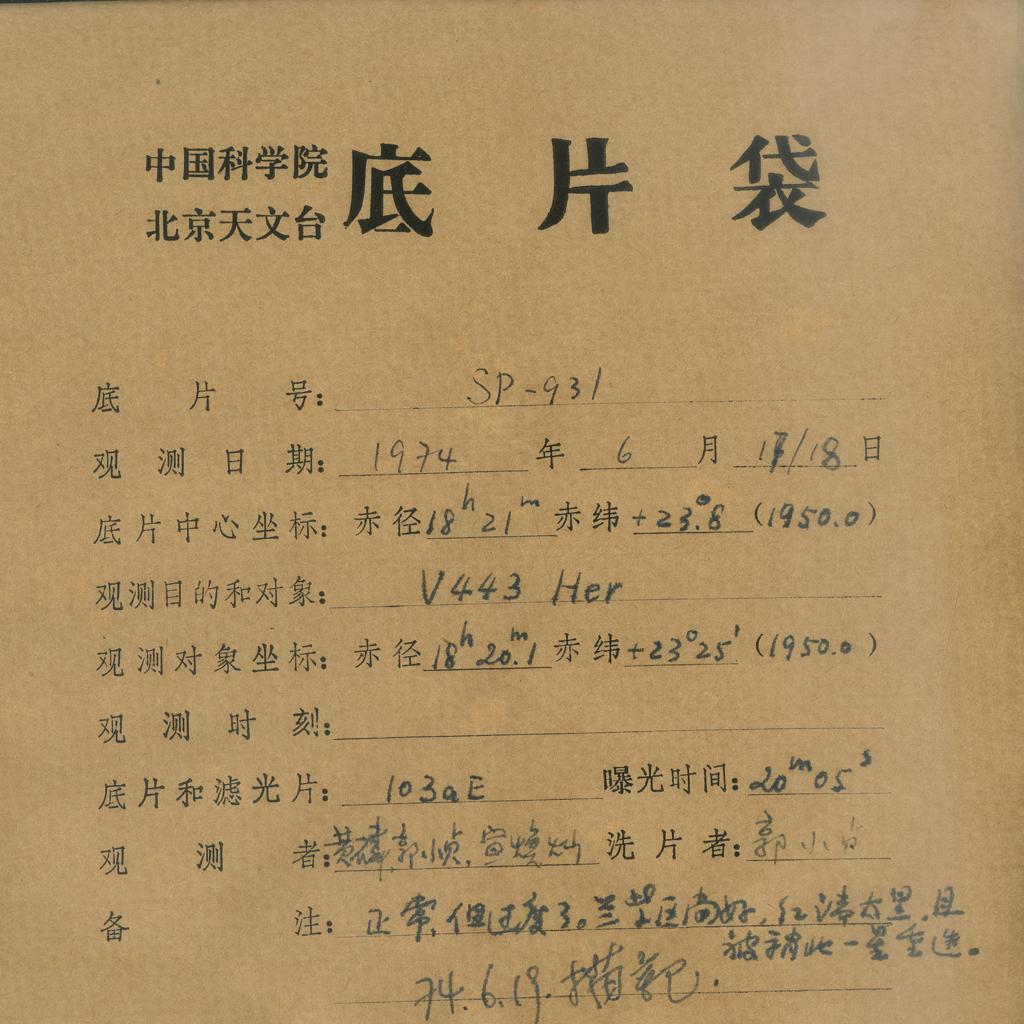 中国科学院
北京天文台
底片袋
底片号: SP-931
观测日期: 1974 年 6 月 17/18 日
底片中心坐标: 赤径 18h 21m 赤纬 +23°.8 (1950.0)
观测目的和对象: V443 Her
观测对象坐标: 赤径 18h 20m.1 赤纬 +23°25' (1950.0)
观测时刻:
底片和滤光片: 103aE 曝光时间: 20m 05s
观测者: 黄磷, 郭小侦, 宣焕灿 洗片者: 郭小
备注: 正常, 但过度了。兰紫区尚好, 红 太黑, 且
被 此一星重迭。
74.6.19. 描